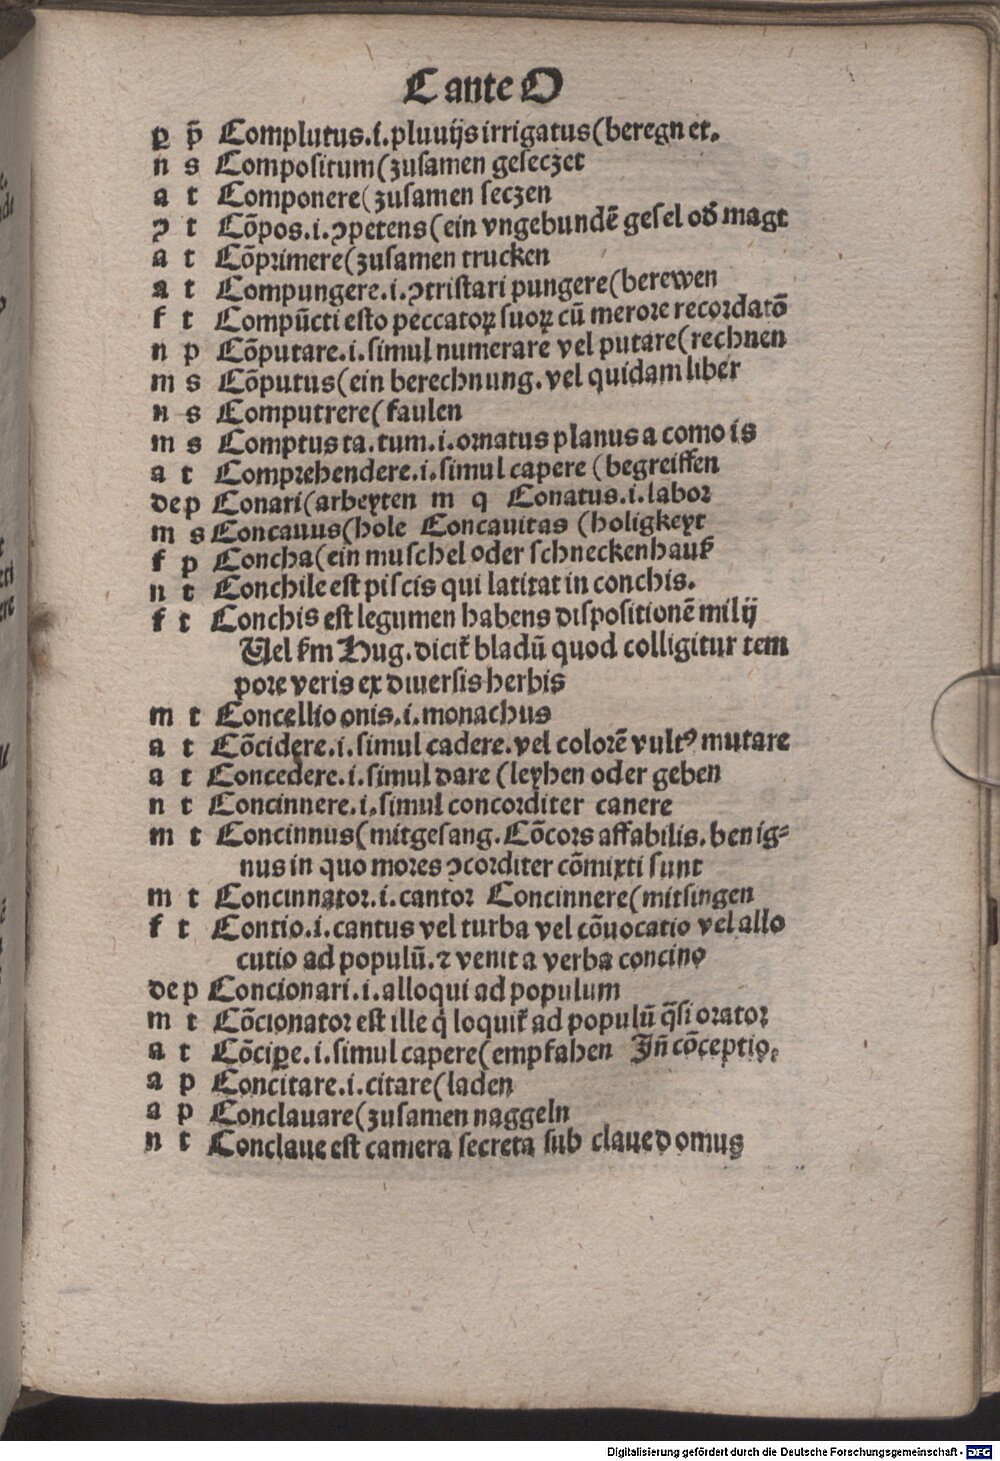 C ante O
ꝑ p̄ Complutus.i.pluuijs irrigatus(beregnet.
n s Compositum(zusamen geseczet
a t Componere(zusamen seczen
ꝯ t Cōpos.i.ꝯpetens(ein vngebundē gesel od̕ magt
a t Cōprimere(zusamen trucken
a t Compungere.i.ꝯtristari pungere(berewen
f t Compūcti esto peccatoꝝ suoꝝ cū merore recordatō
n p Cōputare.i.simul numerare vel putare(rechnen
m s Cōputus(ein berechnung.vel quidam liber
n s Computrere(faulen
m s Comptus ta.tum.i.ornatus planus a como is
a t Comprehendere.i.simul capere (begreiffen
de p Conari(arbeyten m q Conatus.i.labor
m s Concauus(hole Concauitas (holigkeyt
f p Concha(ein muschel oder schneckenhauß
n t Conchile est piscis qui latitat in conchis.
f t Conchis est legumen habens dispositionē milij
Uel ẜm Hug.dicit̄ bladū quod colligitur tem
pore veris ex diuersis herbis
m t Concellio onis.i.monachus
a t Cōcidere.i.simul cadere.vel colorē vultꝰ mutare
a t Concedere.i.simul dare (leyhen oder geben
n t Concinnere.i.simul concorditer canere
m t Concinnus(mitgesang.Cōcors affabilis.benig⸗
nus in quo mores ꝯcorditer cōmixti sunt
m t Concinnator.i.cantor Concinnere(mitsingen
f t Contio.i.cantus vel turba vel cōuocatio vel allo
cutio ad populū.⁊ venit a verba concino
de p Concionari.i.alloqui ad populum
m t Cōcionator est ille q̇ loquit̄ ad populū q̄si orator
a t Cōciꝑe.i.simul capere(empfahen Iñ cōceptio.
a p Concitare.i.citare(laden
a p Conclauare(zusamen naggeln
n t Conclaue est camera secreta sub claue domus
Digitalisierung gefördert durch die Deutsche Forschungsgemeinschaft - DFG